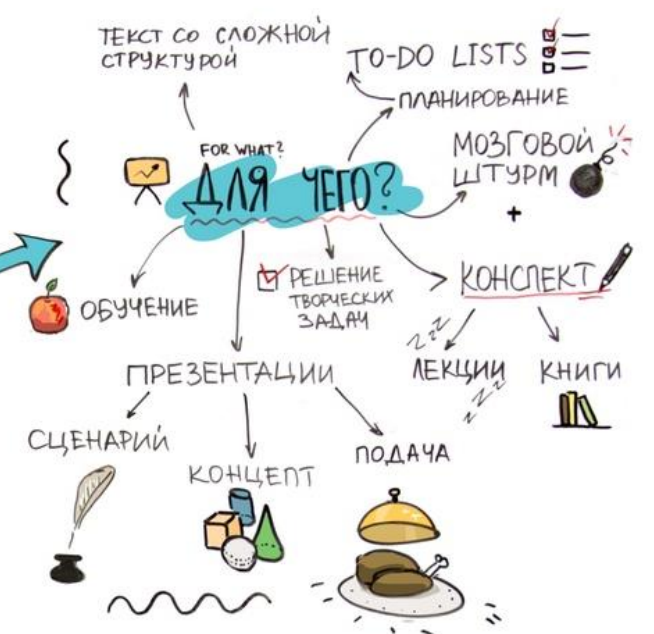 ТЕКСТ СО СЛОЖНОЙ
СТРУКТУРОЙ
TO-DO LISTS
ПЛАНИРОВАНИЕ
FOR WHAT?
ДЛЯ ЧЕГО?
МОЗГОВОЙ
ШТУРМ
+
ОБУЧЕНИЕ
РЕШЕНИЕ
ТВОРЧЕСКИХ
ЗАДАЧ
КОНСПЕКТ
ZZZ
ЛЕКЦИИ
ZZZZ
КНИГИ
ПРЕЗЕНТАЦИИ
СЦЕНАРИЙ
КОНЦЕПТ
ПОДАЧА